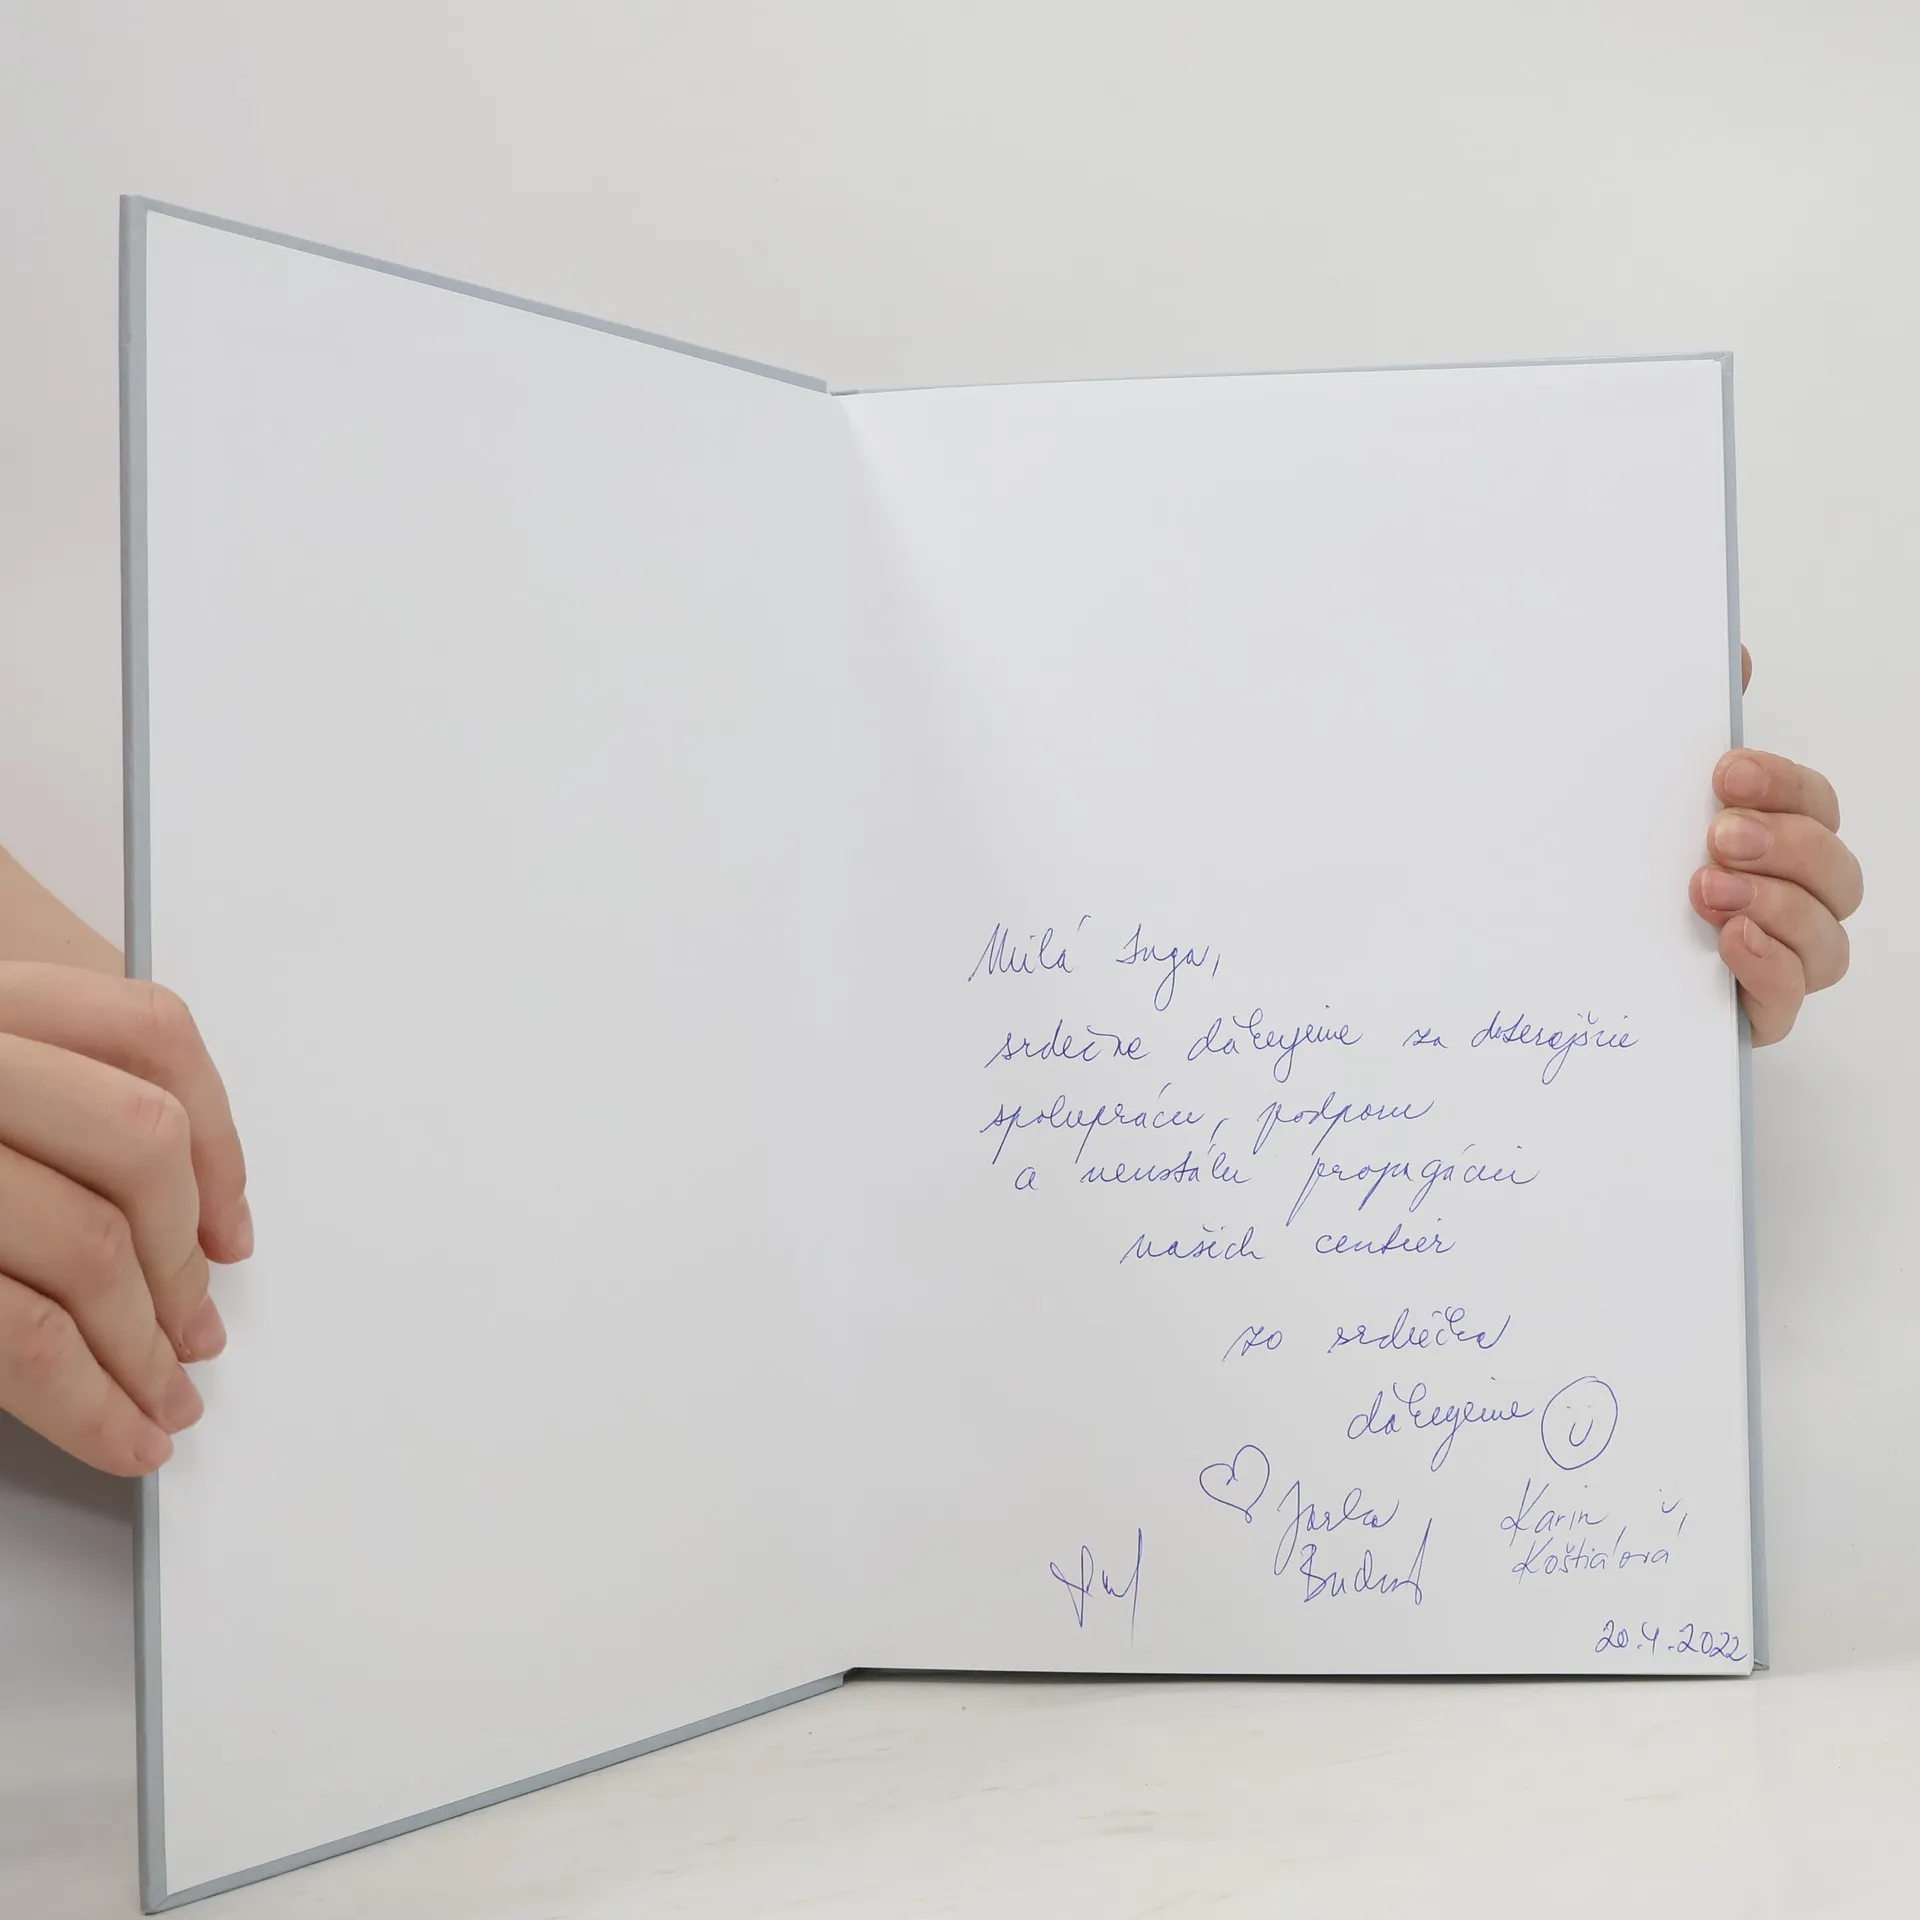 Milá Inga,
srdečne ďakujeme za doterajšie
spoluprácu, podporu
a neustálu propagáciu
našich centier
zo srdiečka
ďakujeme
Jarka
Karin
Koštiaľová
20.4.2022